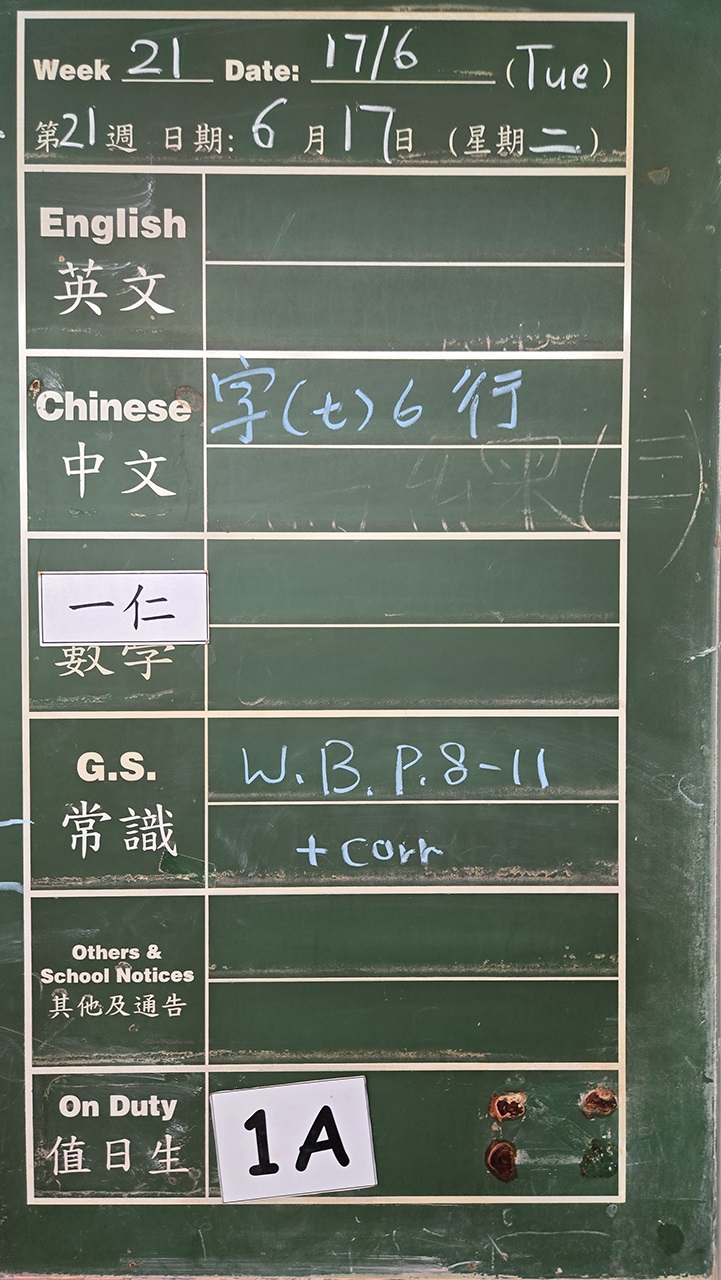 Week 21 Date: 17/6 (Tue)
第21週 日期: 6月17日 (星期二)
English
英文
Chinese
中文
字(七)6行
一仁
數學
G.S.
常識
W.B. P.8-11
+corr
Others &
School Notices
其他及通告
On Duty
值日生
1A